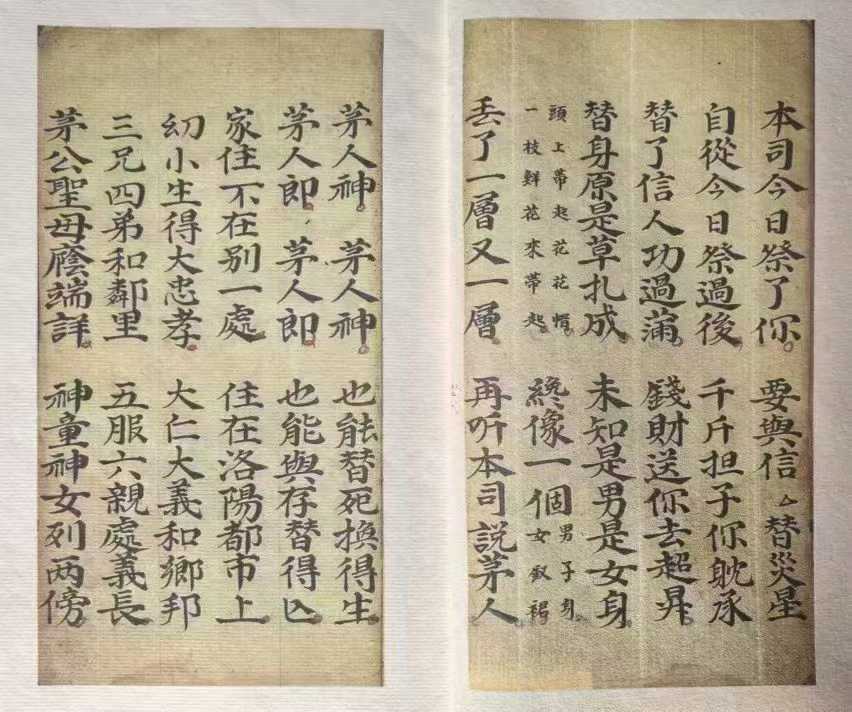 本司今日祭了你。要與信△替災星
自從今日祭過後千斤担子你躭承
替了信人功過蒲。錢財送你去超昇
替身原是草扎成。未知是男是女身
頭上帯起花花帽。
一枝鮮花來蒂起。
纔像一個男子身
女釵裙
丢了一層又一層。再听本司説茅人
茅人神。茅人神。也能替死換得生
茅人郎。茅人郎。也能與存替得亾
家住不在别一處住在洛陽都市上
幼小生得大忠孝。大仁大義和鄉邦
三兄四弟和鄰里五服六親處義長
茅公聖毋廕端詳。神童神女列两傍